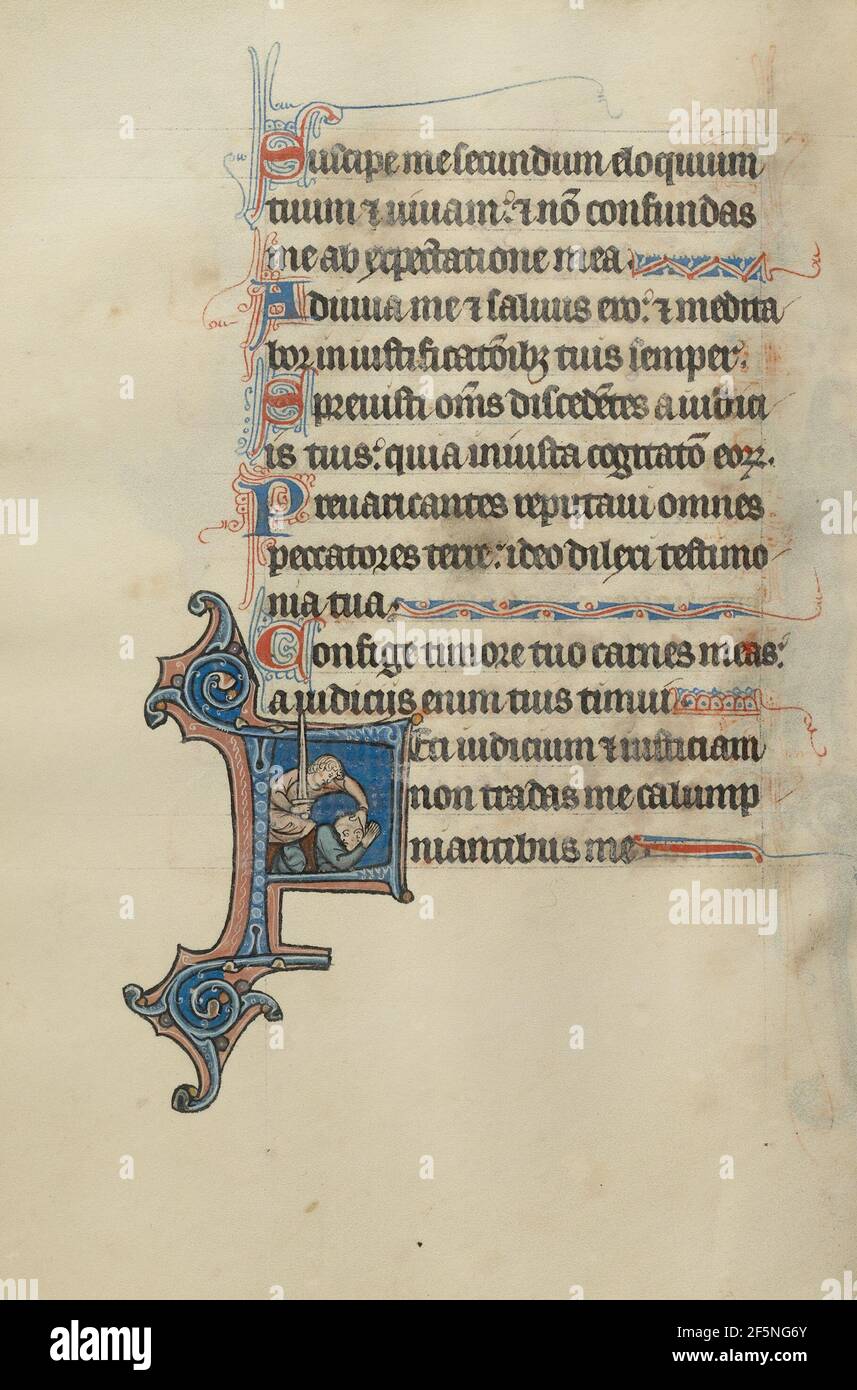 Suscipe me secundum eloquium
tuum ⁊ uiuam: ⁊ nō confundas
me ab expectatione mea.
Adiuua me ⁊ saluus ero: ⁊ medita
bor in iustificatōibꝫ tuis semper.
Spreuisti om̄s discedētes a iudici
is tuis: quia iniusta cogitatō eoꝝ.
Preuaricantes reputaui omnes
peccatores terre: ideo dilexi testimo
nia tua.
Confige timore tuo carnes meas:
a iudicijs enim tuis timui
Feci iudicium ⁊ iusticiam
non tradas me calump
niantibus me
a alamy
alamy
Image ID: 2F5NG6Y
www.alamy.com